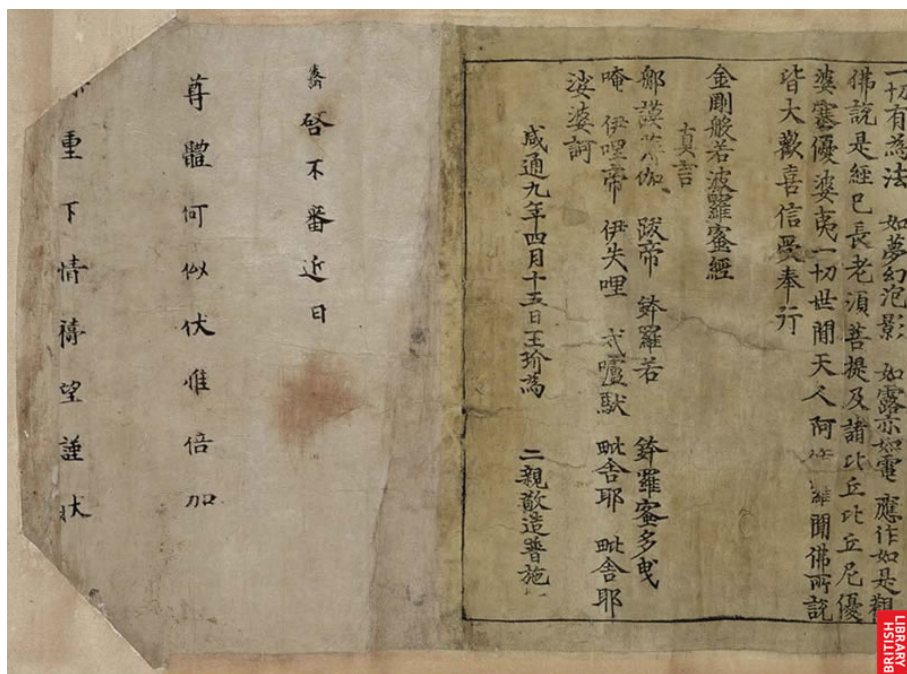 一切有為法 如夢幻泡影 如露亦如電 應作如是觀
佛說是經已長老湏菩提及諸比丘比丘尼優
婆塞優婆夷一切世間天人阿脩羅聞佛所說
皆大歡喜信受奉行
金剛般若波羅蜜經
真言
那謨薄伽 跋帝 鉢羅若 鉢羅蜜多曳
唵 伊哩帝 伊失哩 戍嚧馱 毗舍耶 毗舍耶
娑婆訶
咸通九年四月十五日王玠為 二親敬造普施
啓不審近日
尊體何似伏惟倍加
重下情禱望謹狀
BRITISH
LIBRARY